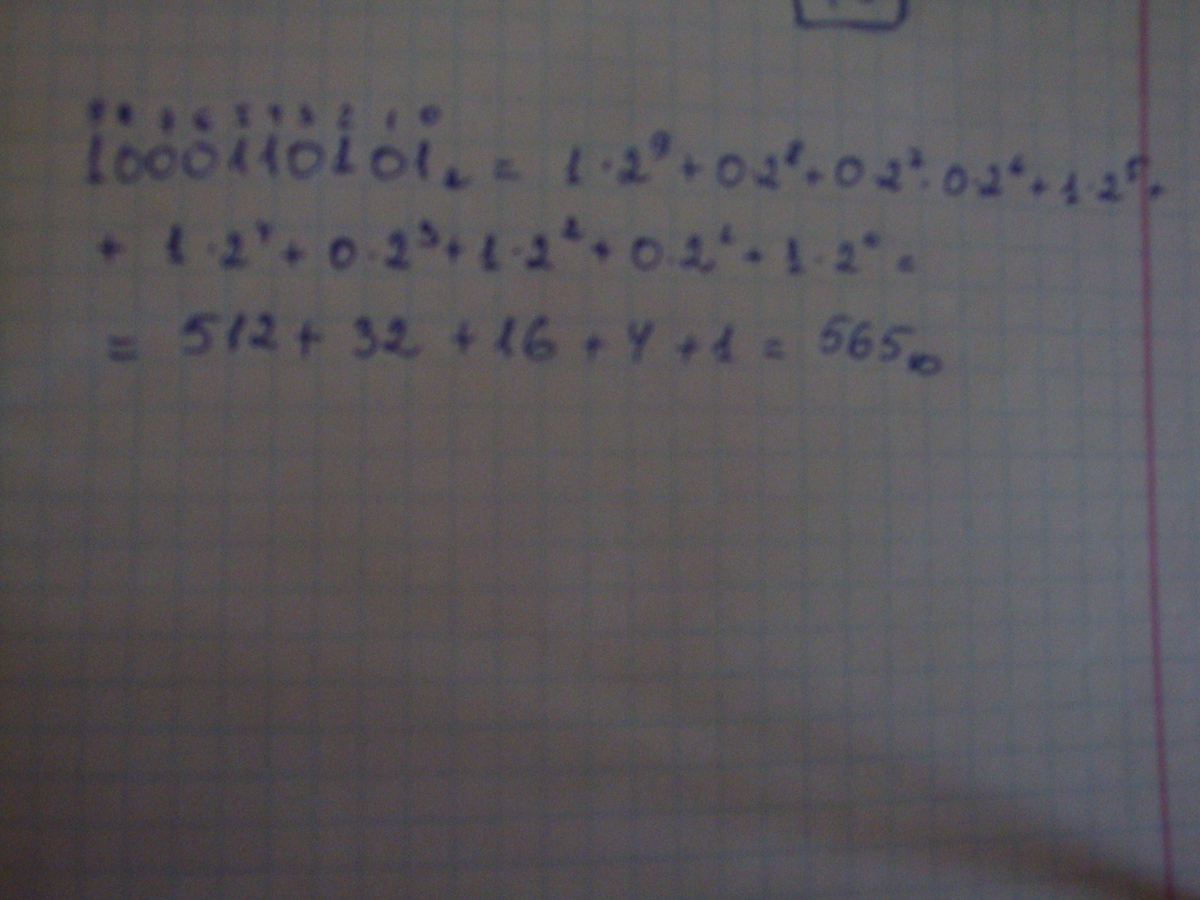 9 8 7 6 5 4 3 2 1 0
1000110101₂ = 1·2⁹ + 0·2⁸ + 0·2⁷ · 0·2⁶ + 1·2⁵ +
+ 1·2⁴ + 0·2³ + 1·2² + 0·2¹ + 1·2⁰ =
= 512 + 32 + 16 + 4 + 1 = 565₁₀